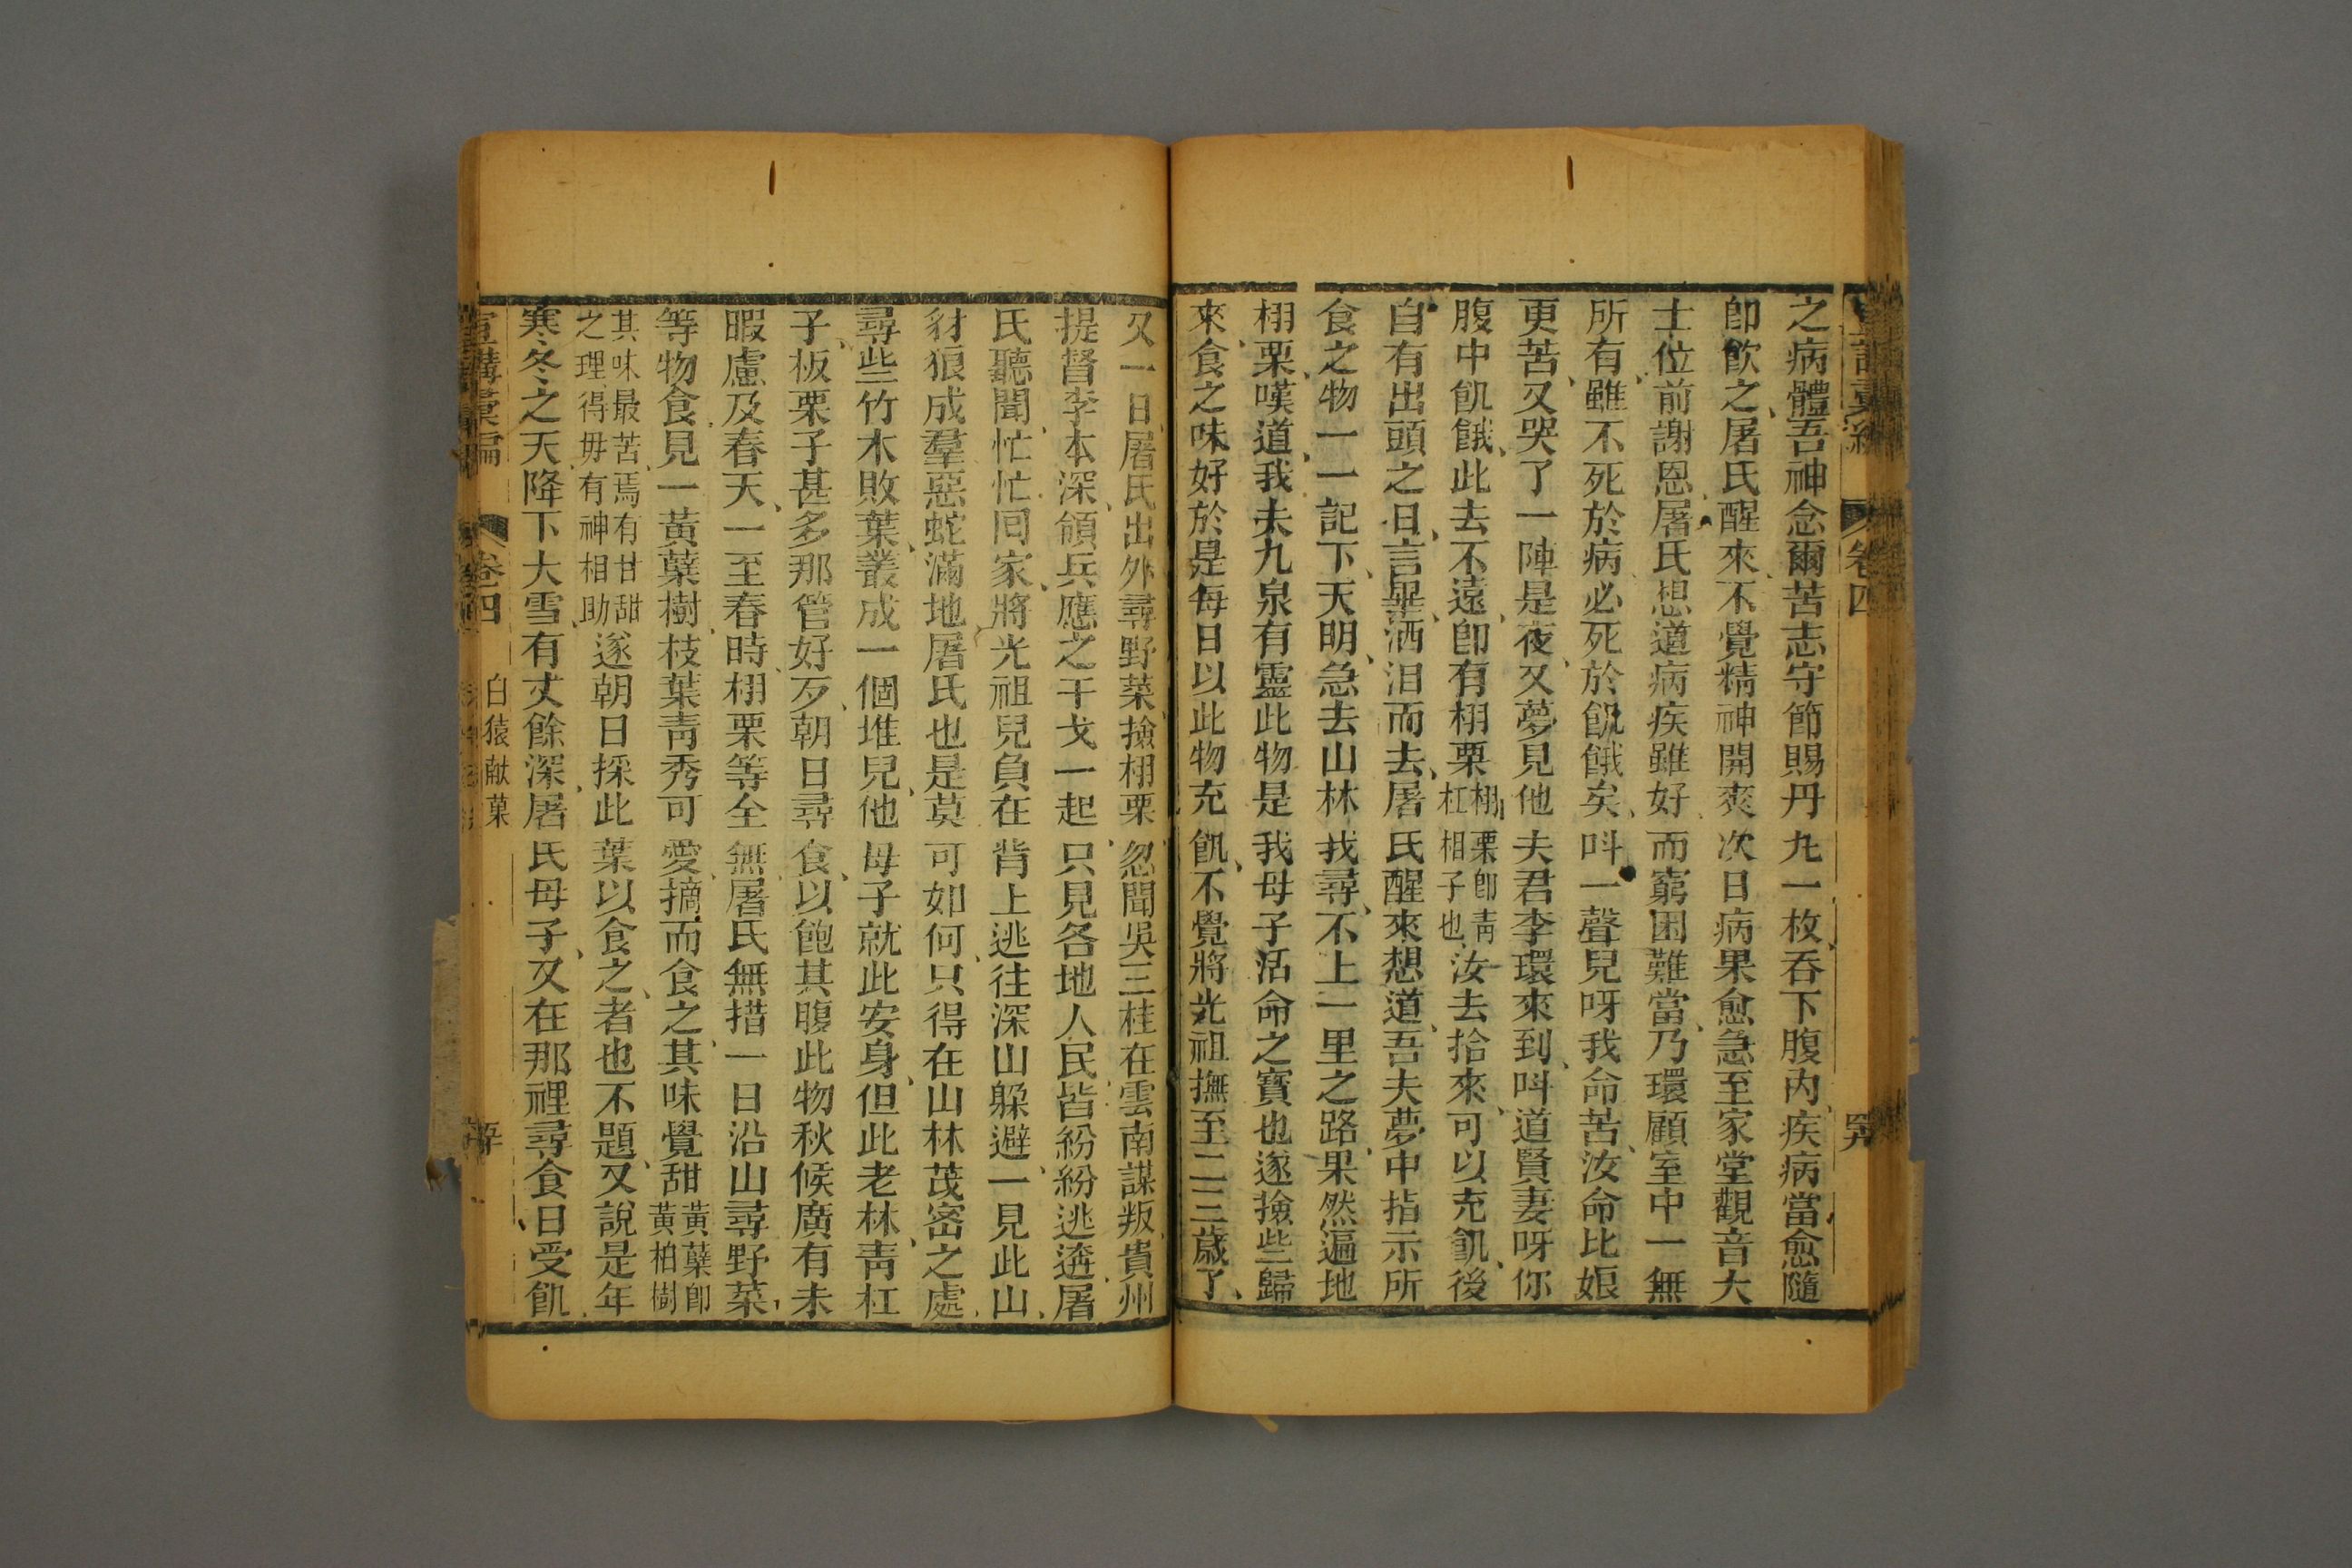 宣講彙編 卷四
之病體吾神念爾苦志守節賜丹九一枚吞下腹內疾病當愈隨
卽飮之屠氏醒來不覺精神開爽次日病果愈急至家堂觀音大
士位前謝恩屠氏想道病疾雖好而窮困難當乃環顧室中一無
所有雖不死於病必死於飢餓矣呌一聲兒呀我命苦汝命比娘
更苦又哭了一陣是夜又夢見他夫君李環來到呌道賢妻呀你
腹中飢餓此去不遠卽有栩栗栩栗卽靑杠相子也汝去拾來可以充飢後
自有出頭之日言畢洒泪而去屠氏醒來想道吾夫夢中指示所
食之物一一記下天明急去山林找尋不上一里之路果然遍地
栩栗嘆道我夫九泉有靈此物是我母子活命之寳也遂撿些歸
來食之味好於是每日以此物充飢不覺將光祖撫至二三歲了
又一日屠氏出外尋野菜撿栩栗忽聞吳三桂在雲南謀叛貴州
提督李本深領兵應之干戈一起只見各地人民皆紛紛逃遊屠
氏聽聞忙忙囘家將光祖兒負在背上逃往深山躱避一見此山
豺狼成羣惡蛇滿地屠氏也是莫可如何只得在山林茂密之處
尋些竹木敗葉叢成一個堆兒他母子就此安身但此老林靑杠
子板栗子甚多那管好歹朝日尋食以飽其腹此物秋候廣有未
暇慮及春天一至春時栩栗等全無屠氏無措一日沿山尋野菜
等物食見一黃蘖樹枝葉靑秀可愛摘而食之其味覺甜黃蘖卽黃柏樹
其味最苦焉有甘甜之理得毋有神相助遂朝日採此葉以食之者也不題又說是年
寒冬之天降下大雪有丈餘深屠氏母子又在那裡尋食日受飢
宣講彙編 卷四 白猿献菓